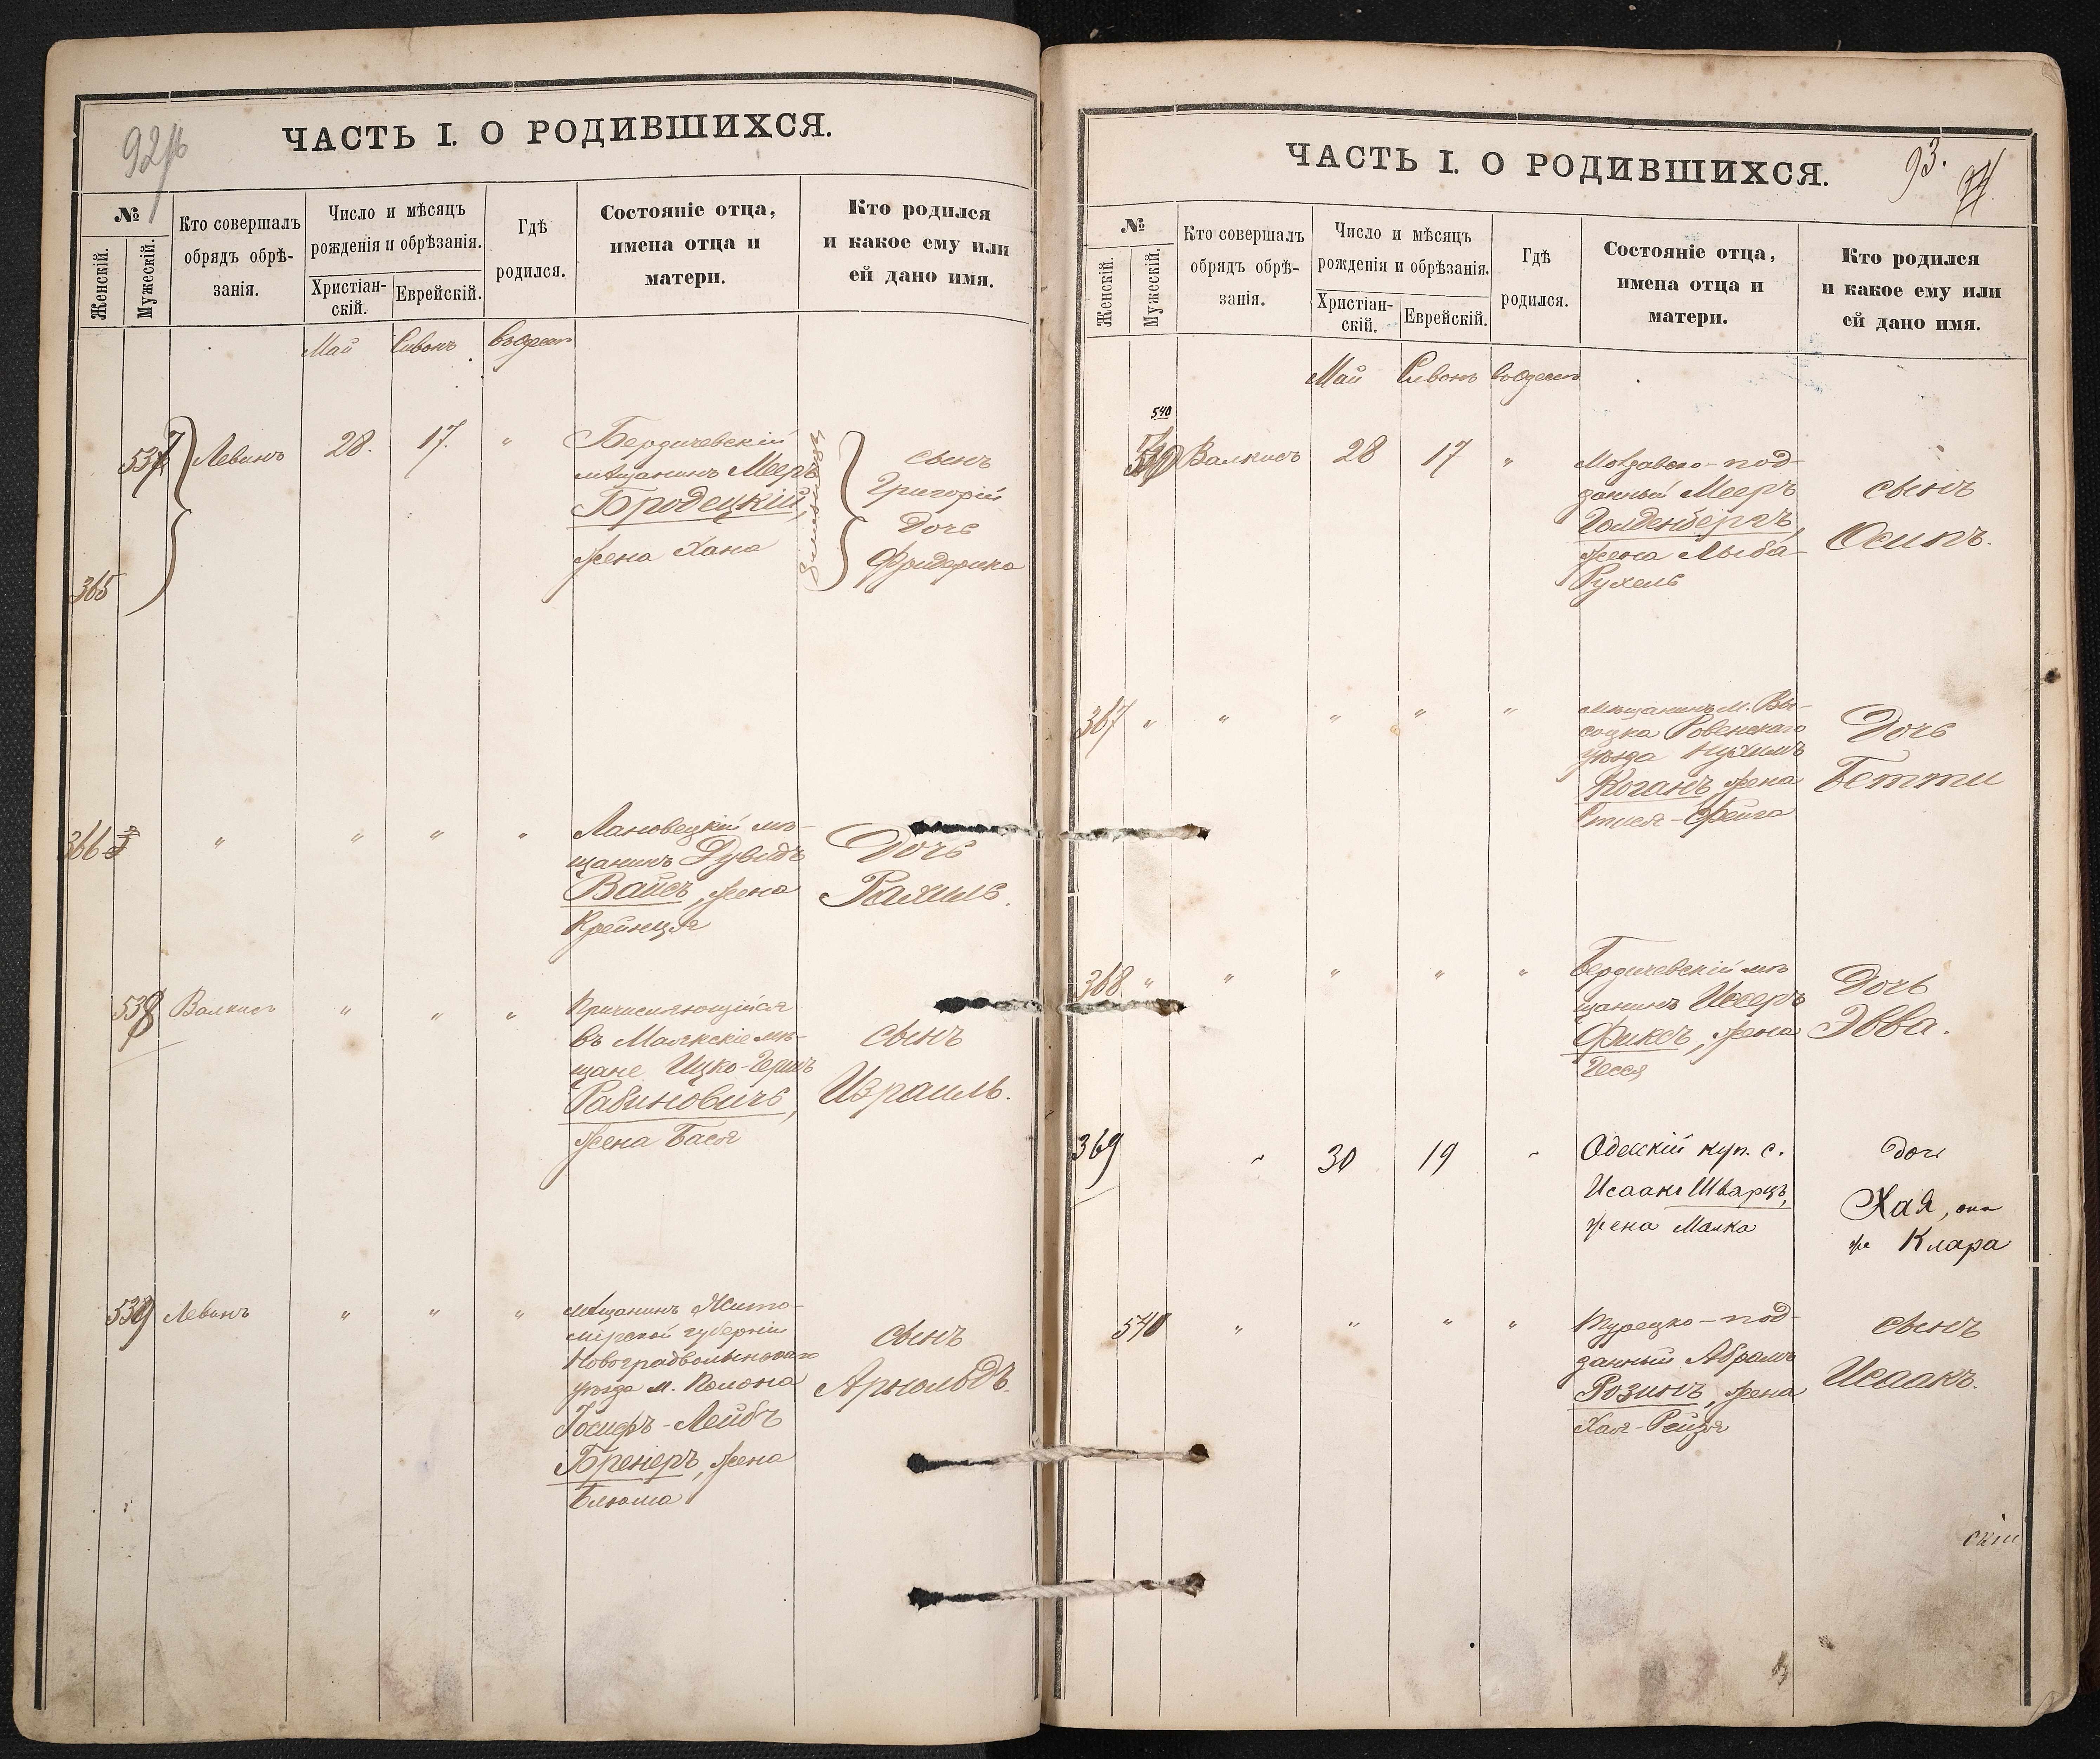 92
ЧАСТЬ I. О РОДИВШИХСЯ.
№
Женскій.
Мужескій.
Кто совершалъ
обрядъ обрѣ-
занія.
Число и мѣсяцъ
рожденія и обрѣзанія.
Христіан-
скій.
Еврейскій.
Гдѣ
родился.
Состояніе отца,
имена отца и
матери.
Кто родился
и какое ему или
ей дано имя.
Май Сивонъ
537 Левинъ 28. 17. "
365
Бердичевскій
мѣщанинъ Мееръ
Бродецкій,
жена Хана
сынъ
Григорій
Дочь
Фридерика
366 " " " "
Лановецкій мѣ-
щанинъ Дувидъ
Вайсъ, жена
Крейнця
Дочь
Рахиль.
538 Валкисъ " " "
Причисляющійся
въ Маякскіе мѣ-
щане Ицко-Гершъ
Рабиновичъ,
жена Бася
сынъ
Израиль.
539 Левинъ " " "
мѣщанинъ Жито-
мірской губерніи
Новоградволынскаго
уѣзда м. Полона
Іосифъ-Лейбъ
Бренеръ, жена
Блюма
сынъ
Арнольдъ.
ЧАСТЬ I. О РОДИВШИХСЯ.
93.
№
Женскій.
Мужескій.
Кто совершалъ
обрядъ обрѣ-
занія.
Число и мѣсяцъ
рожденія и обрѣзанія.
Христіан-
скій.
Еврейскій.
Гдѣ
родился.
Состояніе отца,
имена отца и
матери.
Кто родился
и какое ему или
ей дано имя.
Май Сивонъ
540
Валкисъ 28 17 "
Молдавско-под-
данный Мееръ
Голденбергъ,
жена Лыба-
Рухель
сынъ
Осипъ.
367 " " " " "
Мѣщанинъ м. Вы-
соцка Ровенскаго
уѣзда Нухимъ
Коганъ жена
Фейга
Дочь
Бетти
368 " " " " "
Бердичевскій мѣ
щанинъ Иссеръ
Фиксъ, жена
Гесся
Дочь
Эвва.
369 " 30 19 "
Одесскій куп. с.
Исаакъ Шварцъ,
жена Малка
дочь
Хая, она
же Клара
540 " " " "
Турецко-под-
данный Абрамъ
Розинъ, жена
Хая-Рейзя
сынъ
Исаакъ.